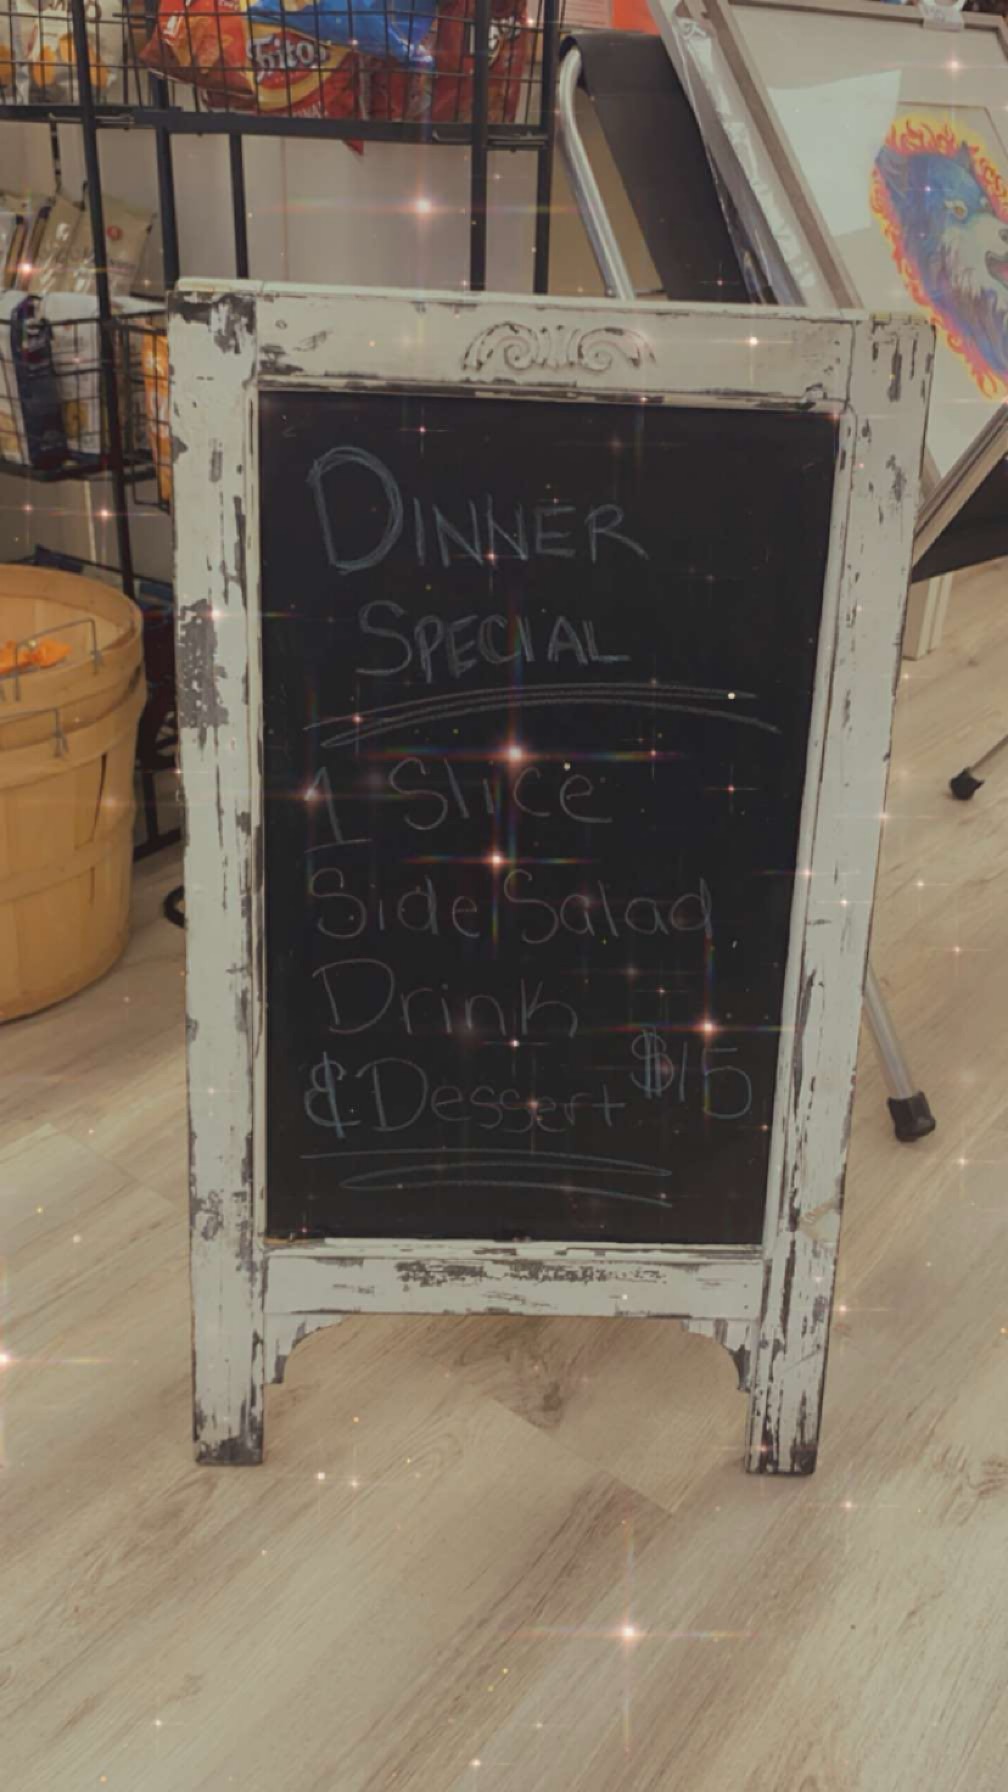 Fritos
DINNER
SPECIAL
1 Slice
Side Salad
Drink
& Dessert $15